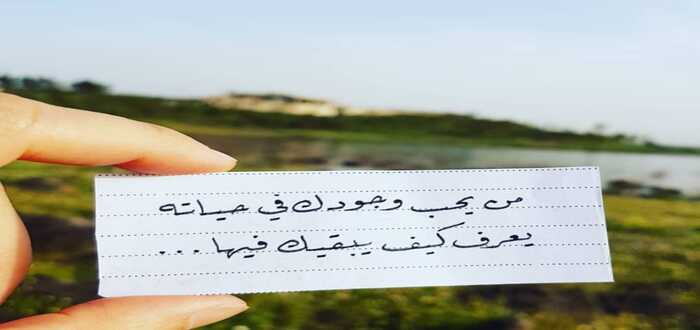 من يحب وجودك في حياته
يعرف كيف يبقيك فيها...